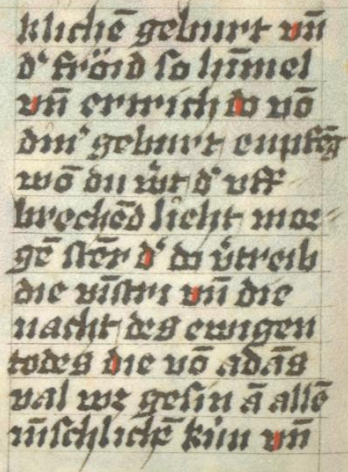 klichē geburt vn̄
dˀ fröid so himel
vn̄ ertrich do vō
dinˀ geburt enpfēg
wō du wˀt dˀ vff
brechēd lieht mor-
gē stēr dˀ do vˀtreib
die vinstri vn̄ die
nacht des ewigen
todes die vō adās
val wc gesin ā allē
mēschlichē kūn vn̄